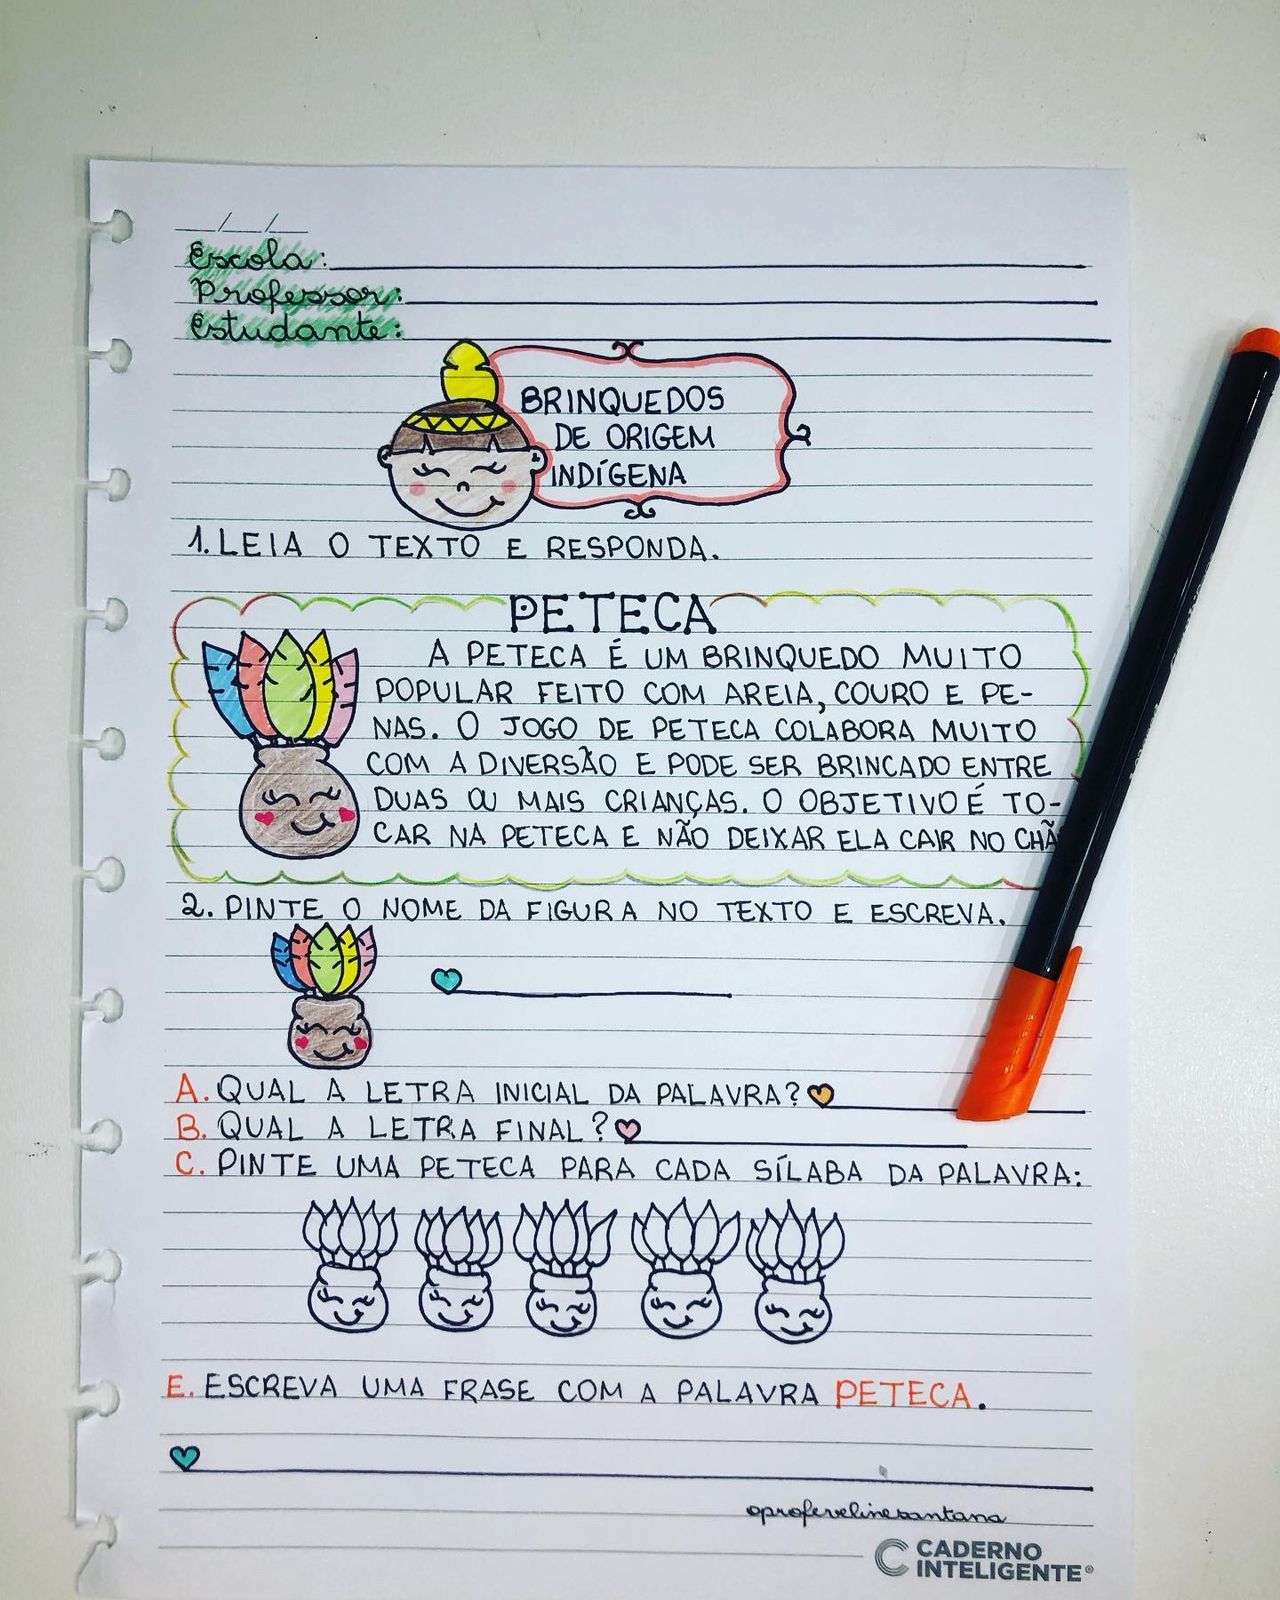 __/__/__
Escola:
Professor:
Estudante:
BRINQUEDOS
DE ORIGEM
INDÍGENA
1. LEIA O TEXTO E RESPONDA.
PETECA
A PETECA É UM BRINQUEDO MUITO
POPULAR FEITO COM AREIA, COURO E PE-
NAS. O JOGO DE PETECA COLABORA MUITO
COM A DIVERSÃO E PODE SER BRINCADO ENTRE
DUAS OU MAIS CRIANÇAS. O OBJETIVO É TO-
CAR NA PETECA E NÃO DEIXAR ELA CAIR NO CHÃ
2. PINTE O NOME DA FIGURA NO TEXTO E ESCREVA.
A. QUAL A LETRA INICIAL DA PALAVRA?
B. QUAL A LETRA FINAL?
C. PINTE UMA PETECA PARA CADA SÍLABA DA PALAVRA:
E. ESCREVA UMA FRASE COM A PALAVRA PETECA.
@profevelinesantana
CADERNO
INTELIGENTE®